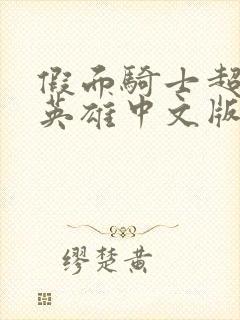 假面騎士超
英雄中文版
缪楚黄